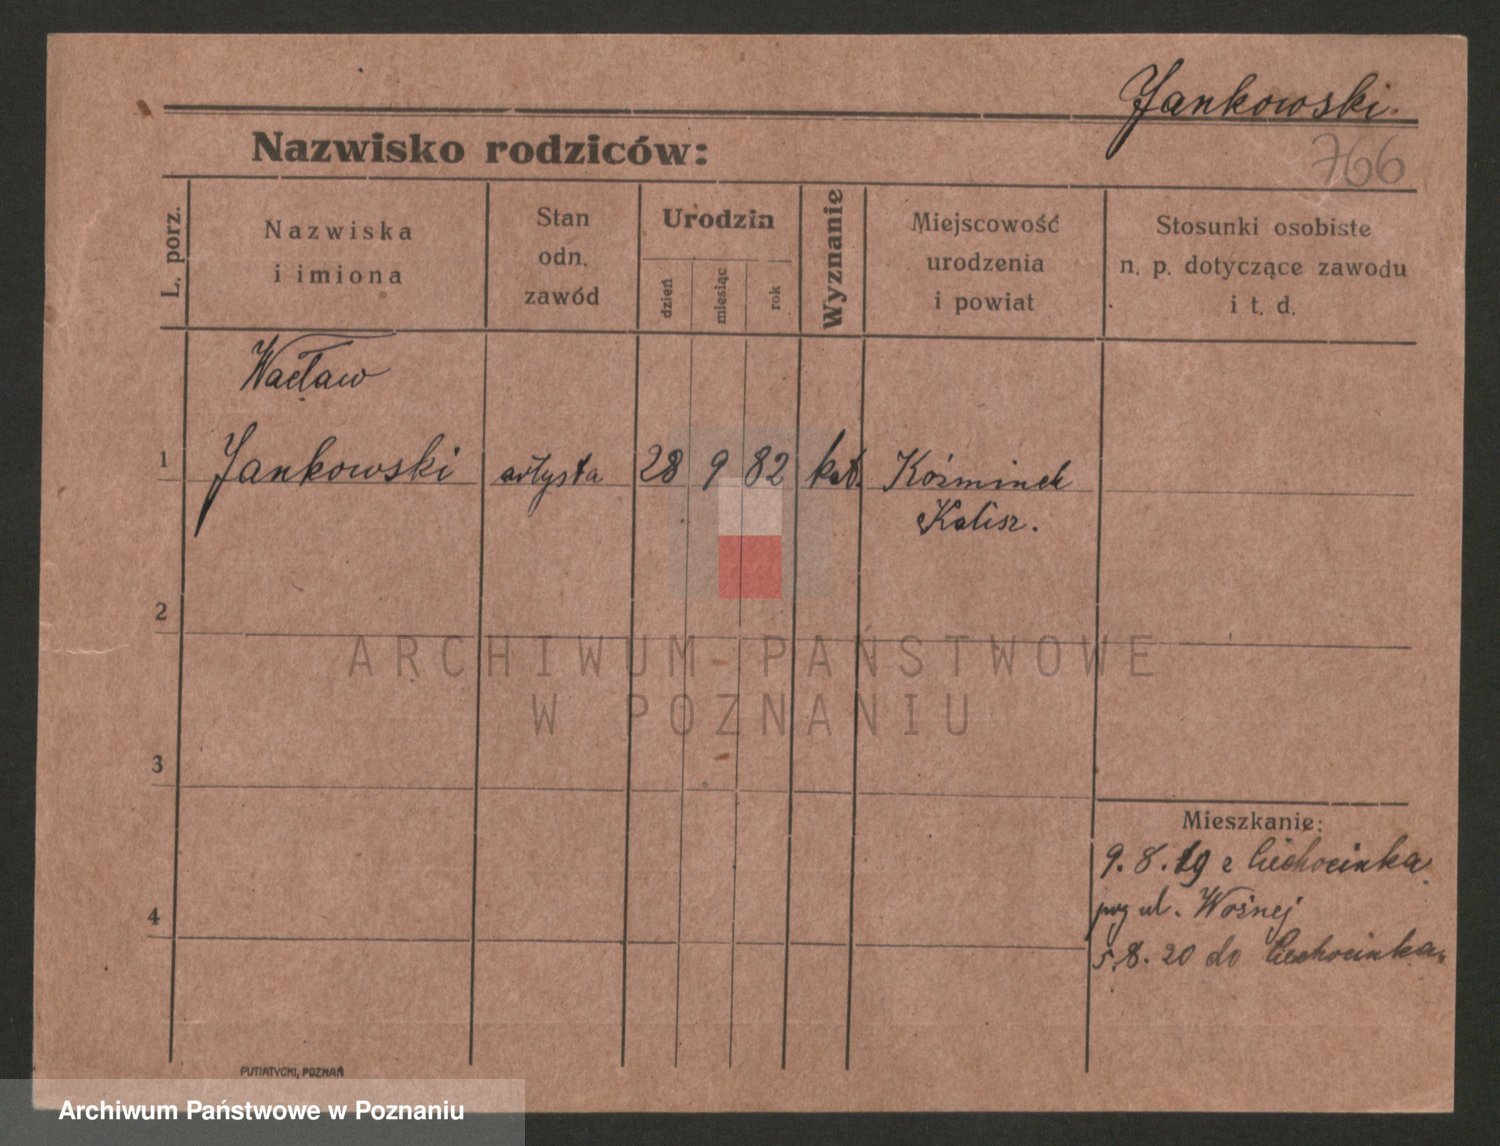 Jankowski.
766
Nazwisko rodziców:
L. porz.
Nazwiska
i imiona
Stan
odn.
zawód
Urodzin
dzień
miesiąc
rok
Wyznanie
Miejscowość
urodzenia
i powiat
Stosunki osobiste
n. p. dotyczące zawodu
i t. d.
Wacław
1 Jankowski artysta 28 9 82 kat. Koźminek
Kalisz.
2
ARCHIWUM PAŃSTWOWE
W POZNANIU
3
Mieszkanie:
9. 8. 19 z Ciechocinka
ul. Woźnej
4
5. 8. 20 do Ciechocinka.
PUTIATYCKI, POZNAŃ
Archiwum Państwowe w Poznaniu